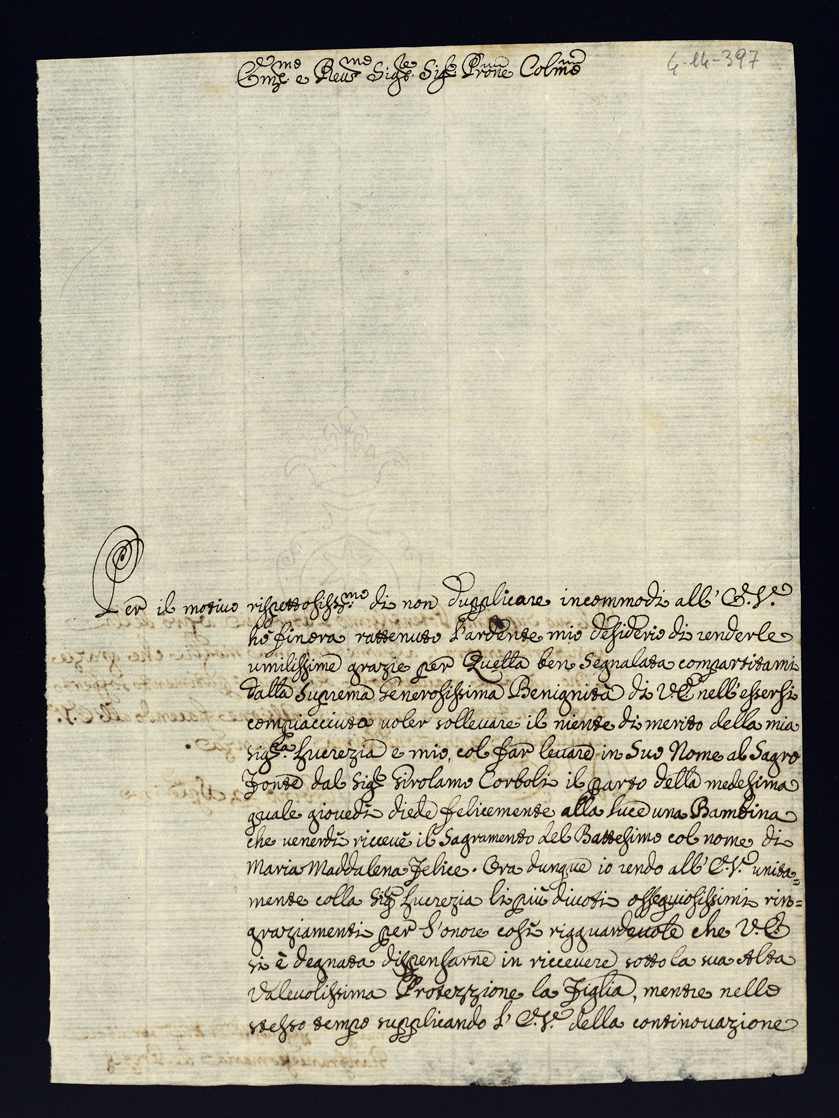 4-14-397
Em.mo e Reu.mo Sig.re Sig.re Pron.e Colmo
Per il motivo rispettosiss.mo di non dupplicare incommodi all' E. V.
hò finora rattenuto l'ardente mio desiderio di renderle
umilissime grazie per quella ben segnalata compartitami
dalla suprema Generosissima Benignità di V E nell'essersi
compiacciuta voler sollevare il niente di merito della mia
Sig.ra Lucrezia e mio, col far levare in Suo Nome al Sagro
Fonte dal Sig.r Girolamo Corboli il parto della medesima
quale giovedì diede felicemente alla luce una Bambina
che venerdì riccevè il Sagramento del Battesimo col nome di
Maria Maddalena Felice. Ora dunque io rendo all' E. V. unita=
mente colla Sig.ra Lucrezia li più divoti ossequiosissimi rin=
graziamenti per l'onore così rigguardevole che V. E.
si è degnata dispensarne in riccevere sotto la sua Alta
Valevolissima Protezzione la Figlia, mentre nello
stesso tempo supplicando l' E. V. della continovazione